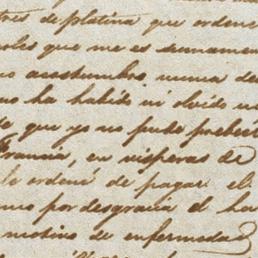 tres de platina que ordene
que me es sumament
acostumbro nunca de
no ha habido ni olvido n
que yo no pude preveer
Francia, en visperas de
le ordené de pagar el
mo por desgracia el ha
motivo de enfermedad